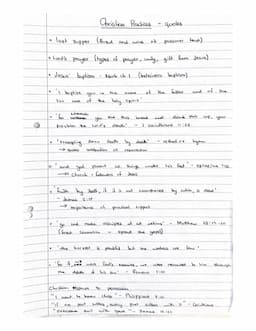 Christian Practices - quotes
• last supper (bread and wine at passover feast)
• Lord's prayer (types of prayer, unity, gift from Jesus)
• Jesus' baptism - Mark ch 1 (believers baptism)
• 'I baptise you in the name of the father and of the
son and of the holy spirit'
• 'for whenever you eat this bread and drink this cup, you
proclaim the lord's death' - 1 corinthians 11:26
• 'trampling down death by death' - orthodox hymn
• 'and god placed all things under his feet' - Ephesians 1:22
→ Church = followers of Jesus
• 'faith by itself, if it is not accompanied by action, is dead'
- James 2:17
→ importance of practical support
• 'go and make disciples of all nations' - Matthew 28:19-20
(Great commission - spread the gospel)
• 'the harvest is plentiful but the workers are few'
• 'for if, while we were God's enemies, we were reconciled to him through
the death of his son' - Romans 5:10
Christian response to persecution
"I want to know christ" - Philippians 3:10
"if one part suffers, every part suffers with it" - Corinthians
"overcome evil with good" - Romans 12:21